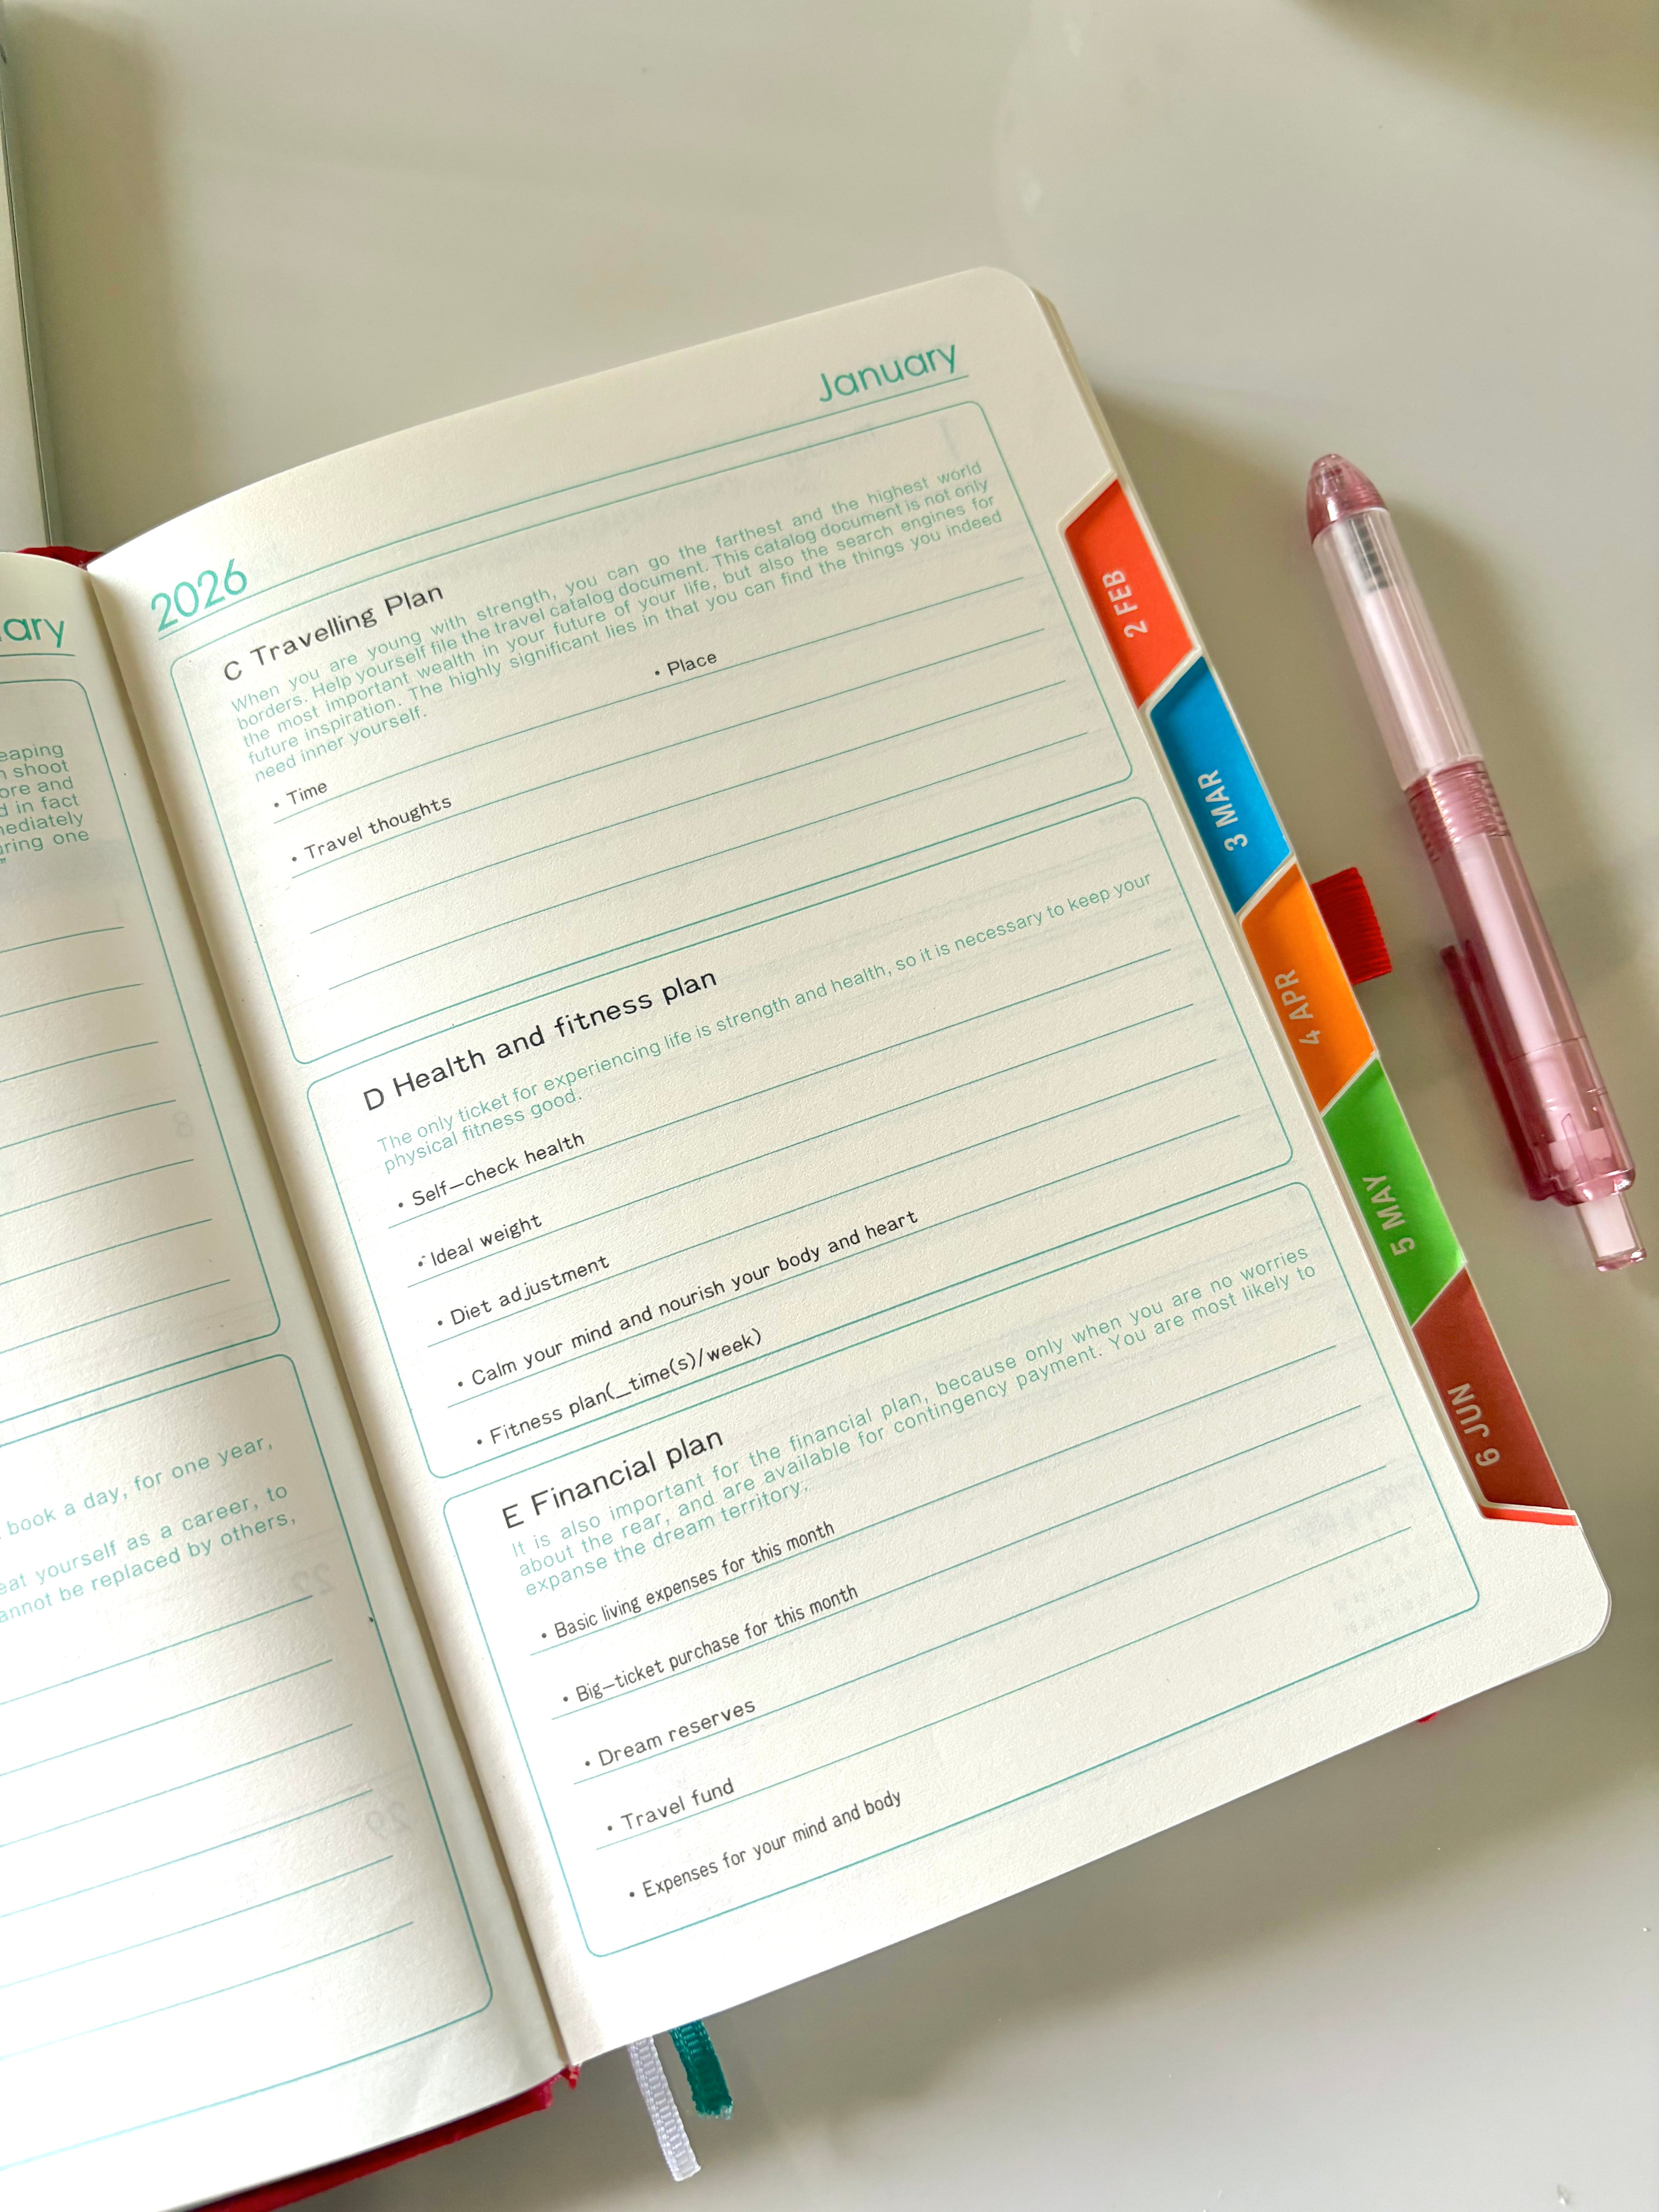 ary
eaping
shoot
ore and
d in fact
nediately
uring one
book a day, for one year,
eat yourself as a career, to
annot be replaced by others,
2026
January
C Travelling Plan
When you are young with strength, you can go the farthest and the highest world
borders. Help yourself file the travel catalog document. This catalog document is not only
the most important wealth in your future of your life, but also the search engines for
future inspiration. The highly significant lies in that you can find the things you indeed
need inner yourself.
• Time • Place
• Travel thoughts
D Health and fitness plan
The only ticket for experiencing life is strength and health, so it is necessary to keep your
physical fitness good.
• Self-check health
• Ideal weight
• Diet adjustment
• Calm your mind and nourish your body and heart
• Fitness plan(_time(s)/week)
E Financial plan
It is also important for the financial plan, because only when you are no worries
about the rear, and are available for contingency payment. You are most likely to
expanse the dream territory.
• Basic living expenses for this month
• Big-ticket purchase for this month
• Dream reserves
• Travel fund
• Expenses for your mind and body
2 FEB
3 MAR
4 APR
5 MAY
6 JUN